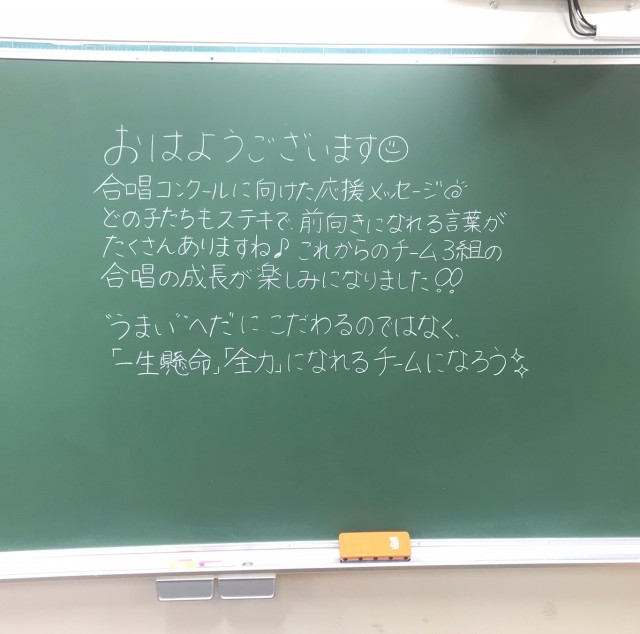 おはようございます☺
合唱コンクールに向けた応援メッセージ
どの子たちもステキで、前向きになれる言葉が
たくさんありますね♪これからのチーム3組の
合唱の成長が楽しみになりました!!
"うまい""へた"にこだわるのではなく、
「一生懸命」「全力」になれるチームになろう✨